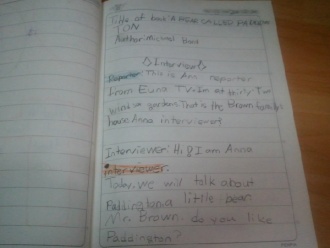 Title of book: A BEAR CALLED PADDING
TON
Author: Michael Bond
Interview
Reporter: This is Ann reporter
From Euro TV-Im at thirty Two
Windsor gardens. That is the brown family
house Anna interviewer
Interviewer: Hi, I am Anna
interviewer.
Today, we will talk about
Paddington a little bear
Mr. Brown do you like
Paddington?